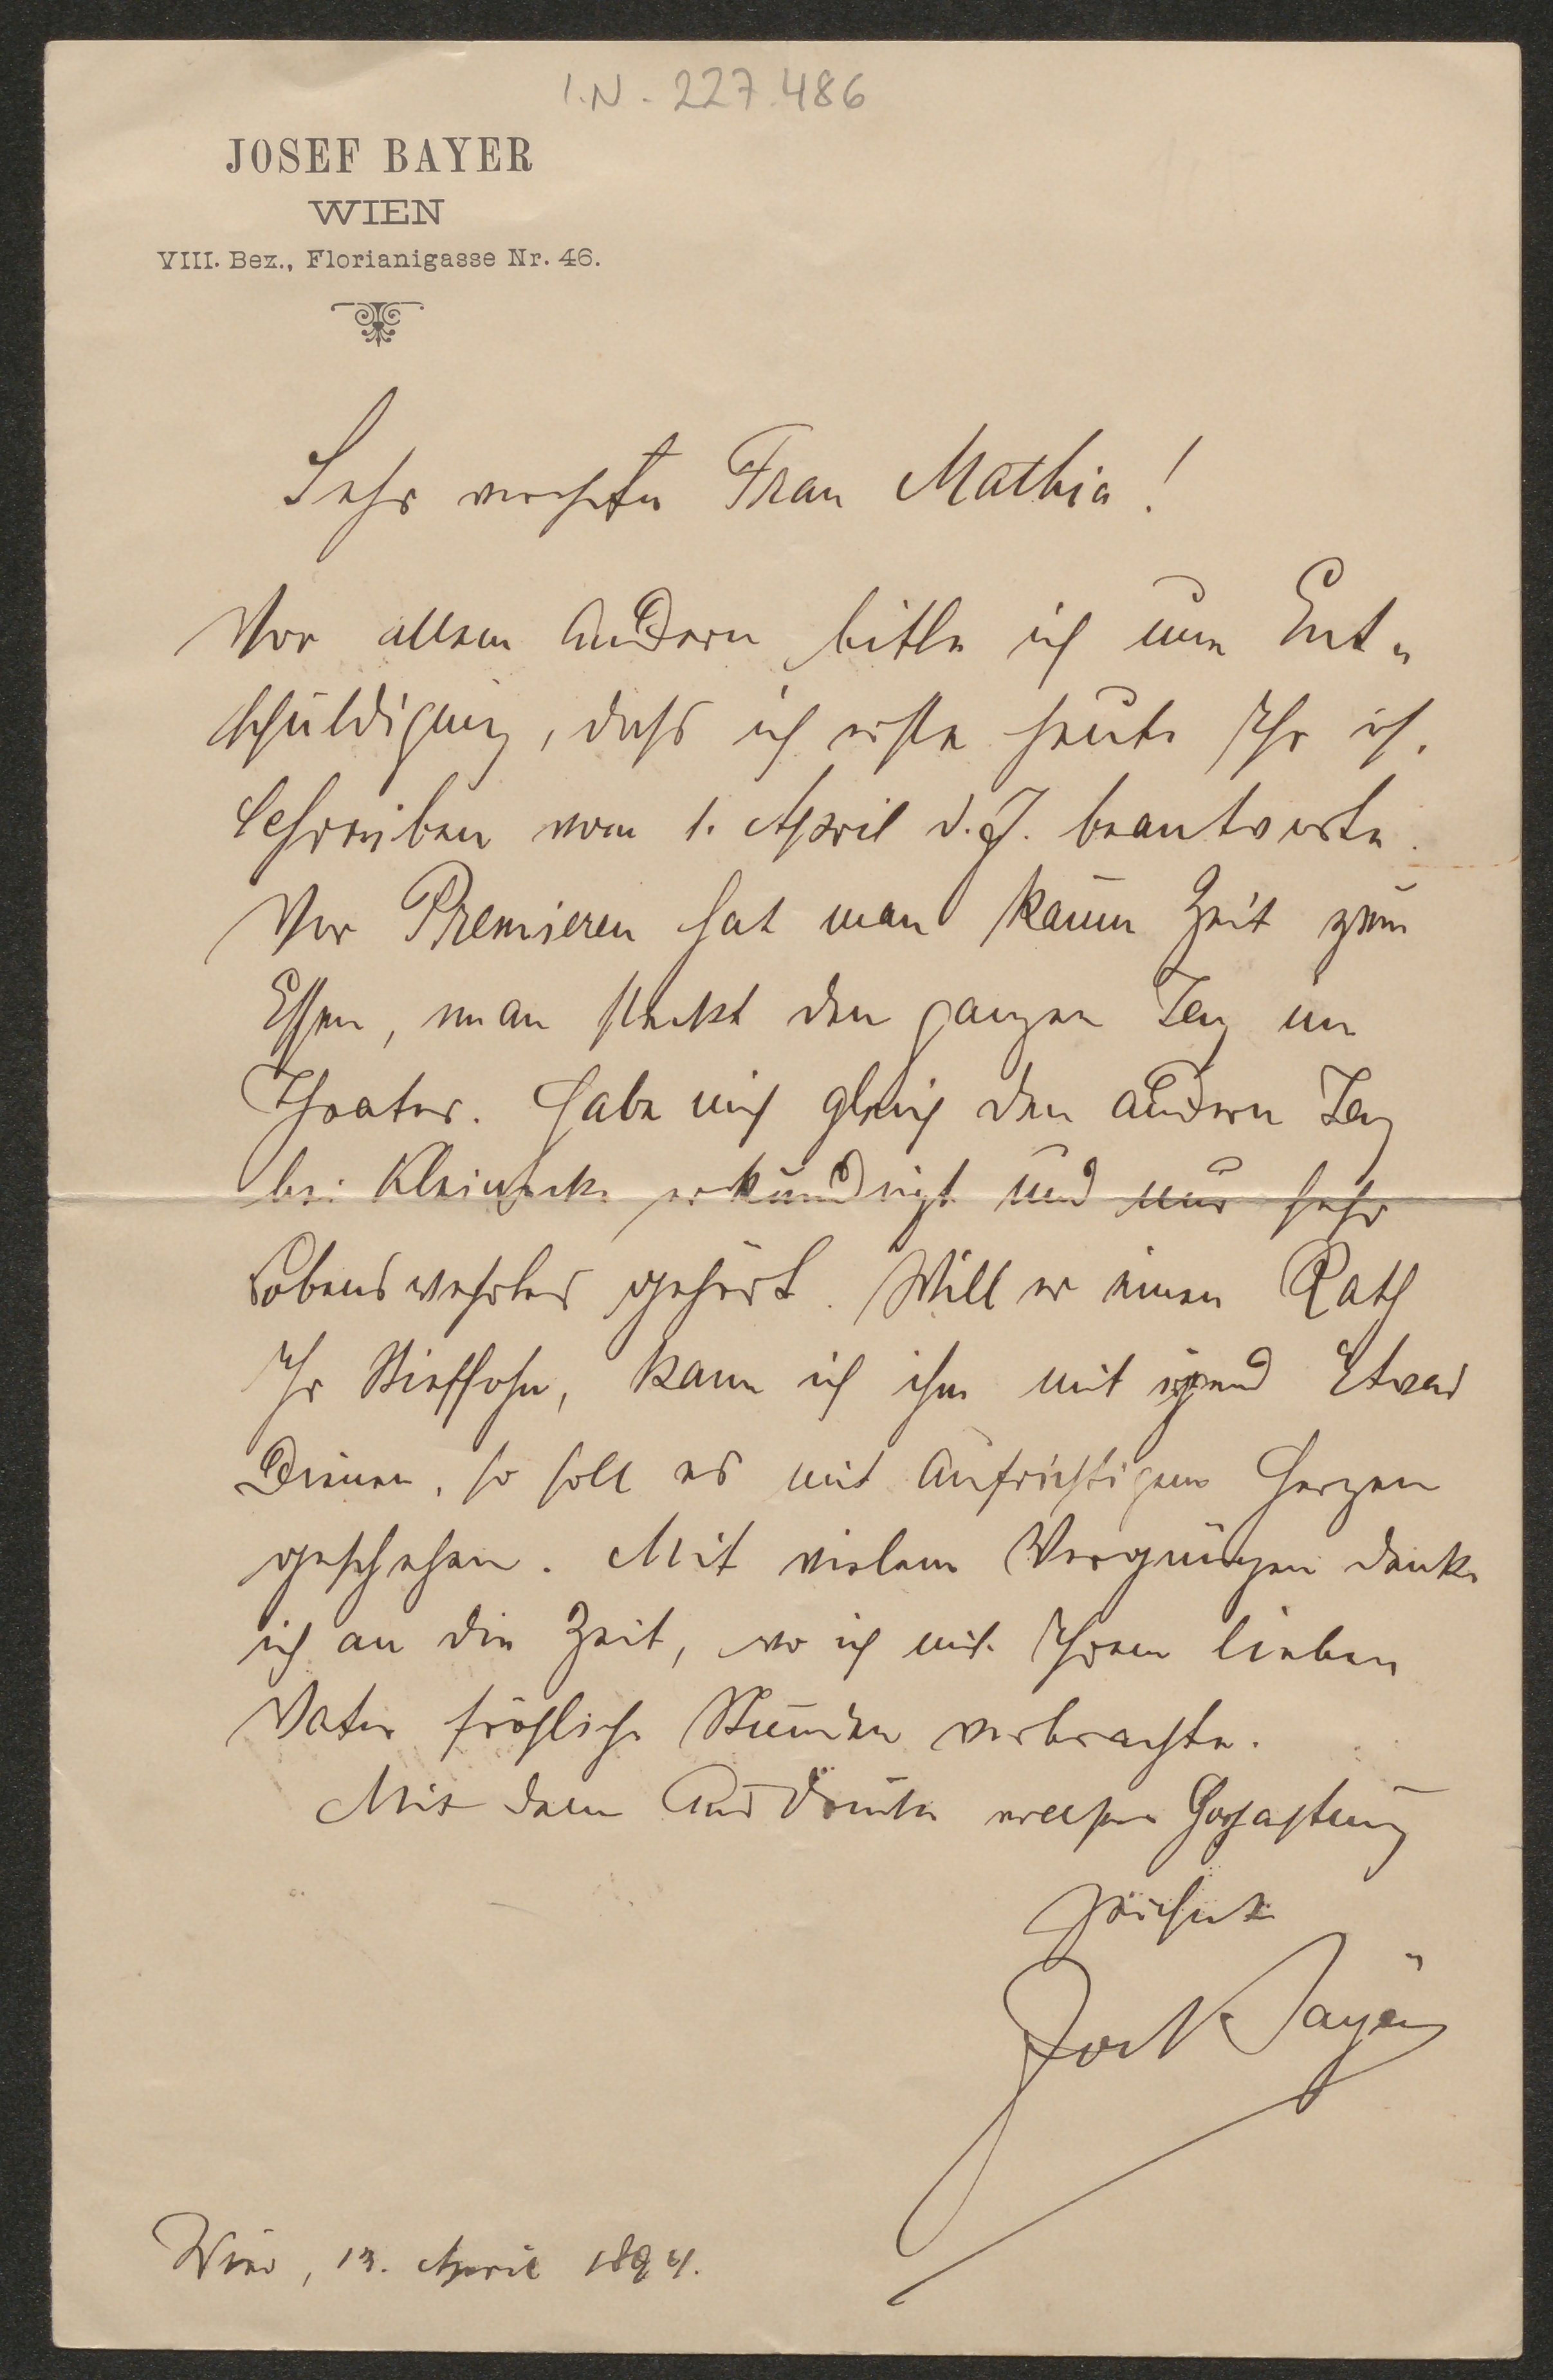 I.N. 227.486
JOSEF BAYER
WIEN
VIII. Bez., Florianigasse Nr. 46.
Sehr verehrte Frau Mathia!
Vor allem Andern bitte ich um Ent-
schuldigung, dass ich erst heute Ihr
Schreiben vom 1. April d. J. beantworte.
Vor Premieren hat man kaum Zeit zum
Essen, man steckt den ganzen Tag im
Theater. Habe mich gleich den andern Tag
bei erkundigt und nur sehr
Lobenswerthes gehört. Will er einen Rath
Ihr Stiefsohn, kann ich ihm mit irgend Etwas
Dienen, so soll es mit aufrichtigem Herzen
geschehen. Mit vielem Vergnügen denke
ich an die Zeit, wo ich mit Ihrem lieben
Vater fröhliche Stunden verbrachte.
Mit dem Ausdrucke Hochachtung
zeichnet
Josef Bayer
Wien, 13. April 1894.